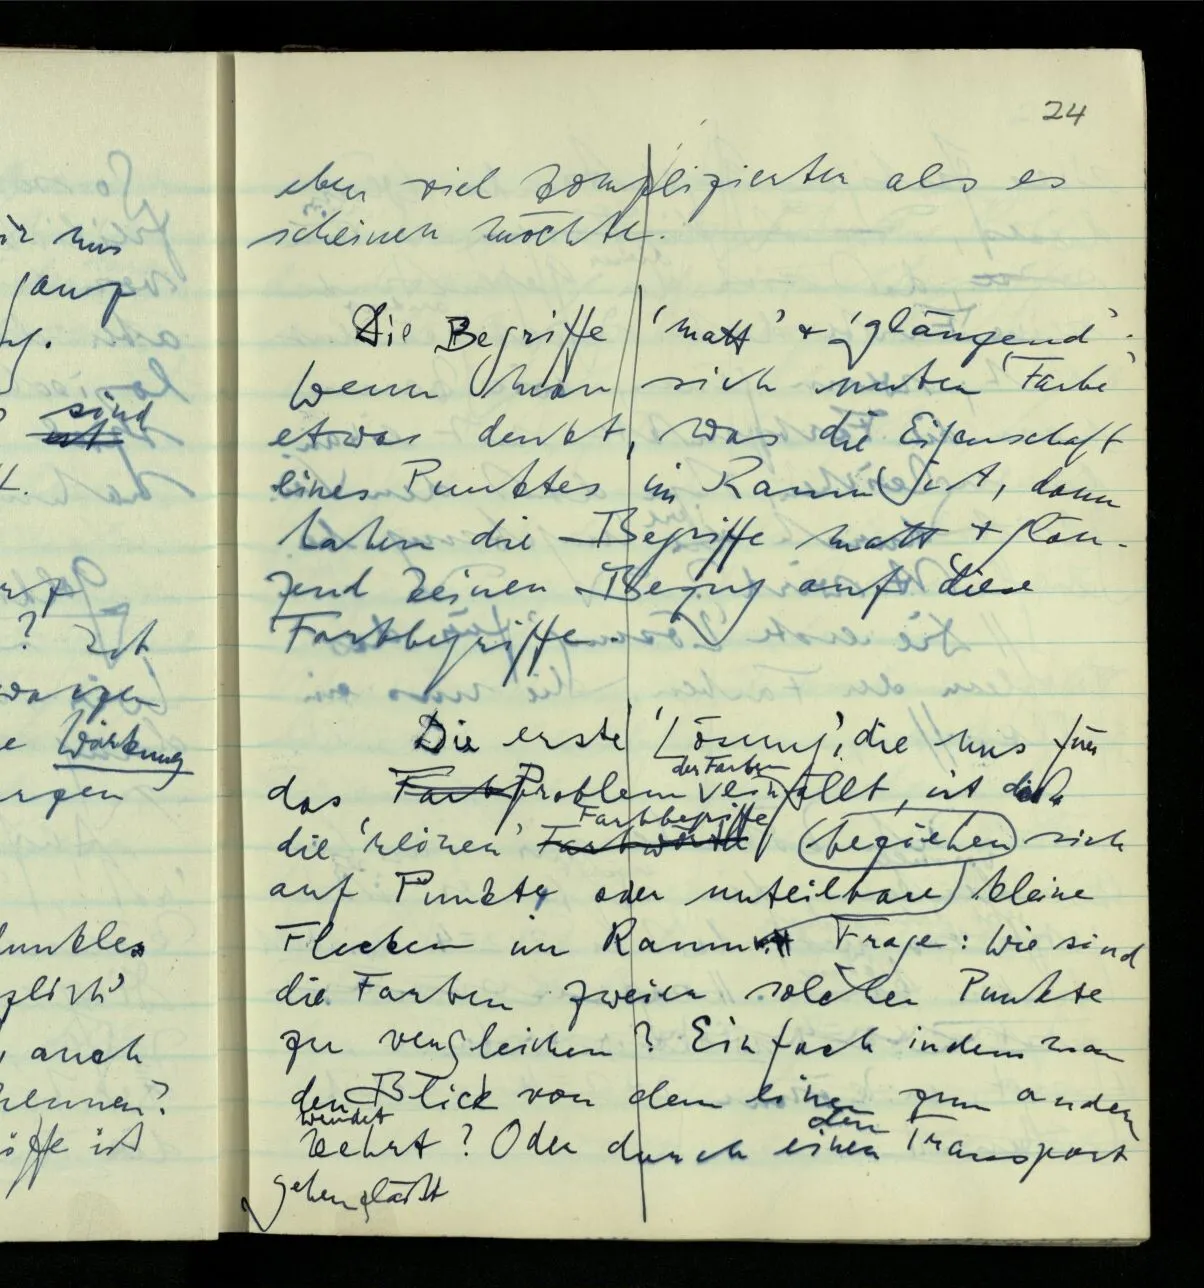 ir uns
ganz
sind
ist
? Ist
Wirkung
dunkles
auch
kennen?
ist
24
eben viel komplizierter als es
scheinen möchte.
Die Begriffe 'matt' + 'glänzend'.
Wenn man sich unter 'Farbe'
etwas denkt, was die Eigenschaft
eines Punktes im Raum ist, dann
haben die Begriffe matt + glän-
zend keinen Bezug auf diese
Farbbegriffe.
Die erste 'Lösung', die uns für
der Farben
das Farbproblem einfällt, ist daß
Farbbegriffe
die 'reinen' Farbworte beziehen sich
auf Punkte oder unteilbare kleine
Flecken im Raum. Frage: Wie sind
die Farben zweier solcher Punkte
zu vergleichen? Einfach indem man
den Blick von dem einen zum andern
wendet den
kehrt? Oder durch einen Transport
gehen läßt